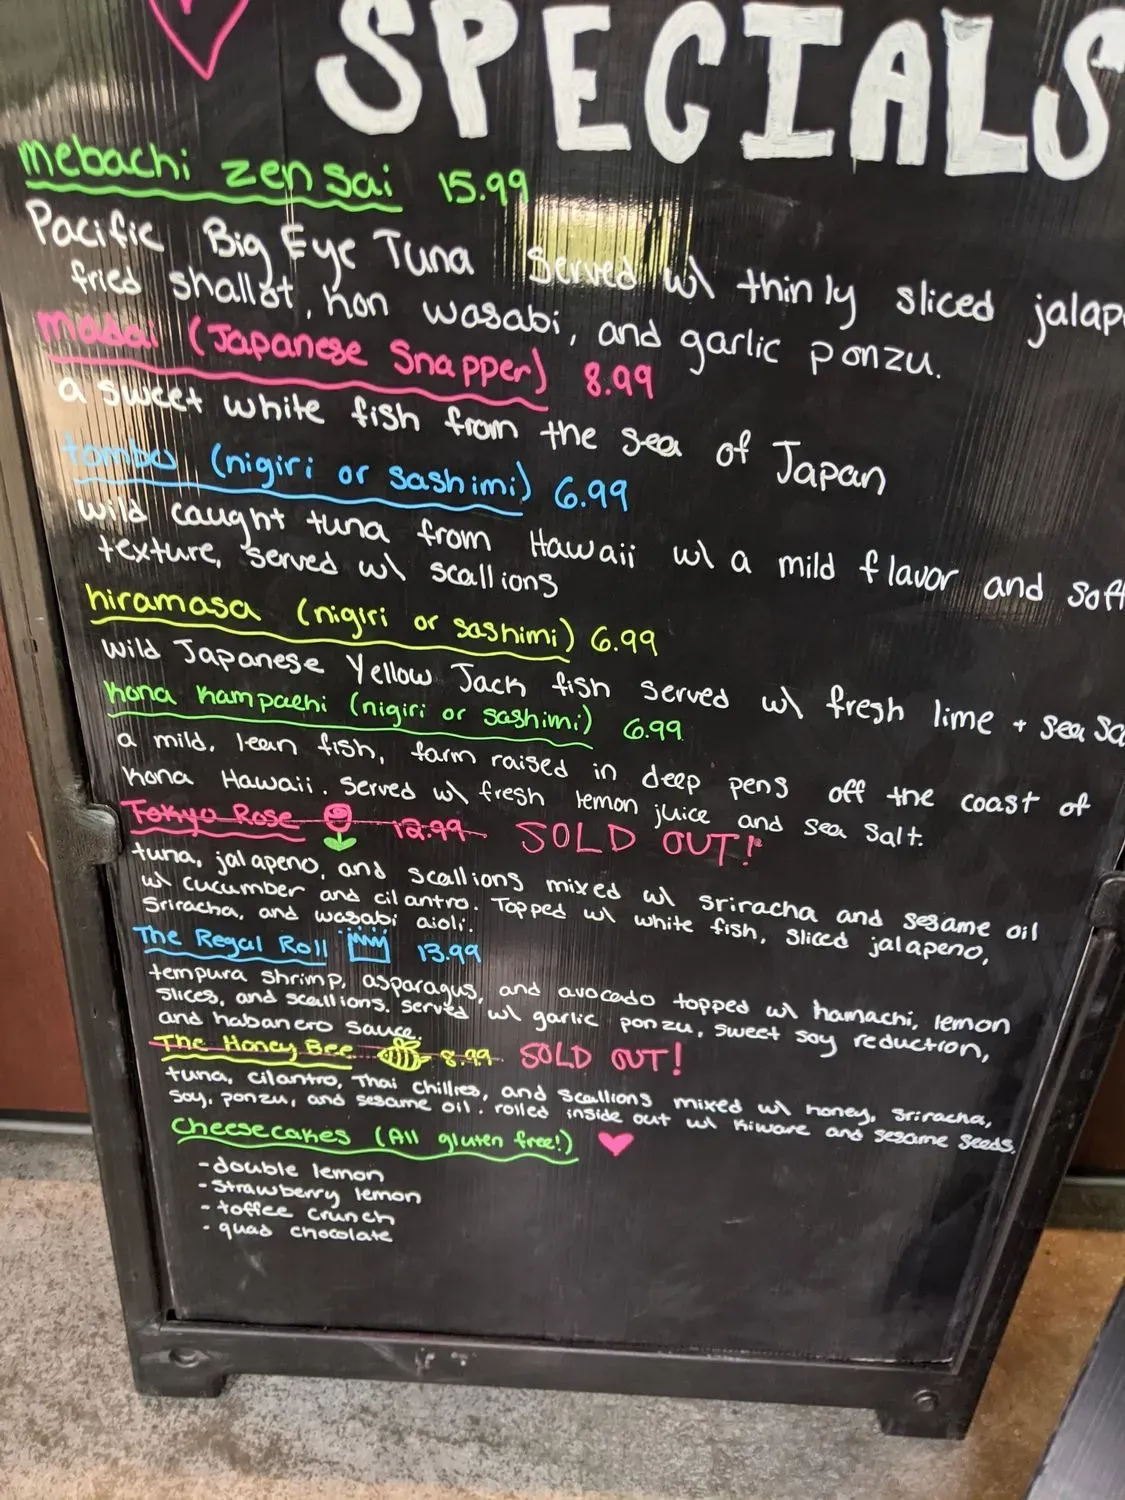 SPECIALS
mebachi zensai 15.99
Pacific Big Eye Tuna served w\ thinly sliced jalap
fried shallot, kon wasabi, and garlic ponzu.
madai (Japanese Snapper) 8.99
a sweet white fish from the sea of Japan
tombo (nigiri or sashimi) 6.99
wild caught tuna from Hawaii w\ a mild flavor and soft
texture, served w\ scallions
hiramasa (nigiri or sashimi) 6.99
wild Japanese Yellow Jack fish served w\ fresh lime + sea sa
kona kampachi (nigiri or sashimi) 6.99
a mild, lean fish, farm raised in deep pens off the coast of
kona Hawaii. served w\ fresh lemon juice and sea salt.
Tokyo Rose 12.99 SOLD OUT!
tuna, jalapeno, and scallions mixed w\ sriracha and sesame oil
w\ cucumber and cilantro. Topped w\ white fish, sliced jalapeno,
Sriracha, and wasabi aioli.
The Regal Roll 13.99
tempura shrimp, asparagus, and avocado topped w\ hamachi, lemon
slices, and scallions. served w\ garlic ponzu, sweet soy reduction,
and habanero sauce.
The Honey Bee 8.99 SOLD OUT!
tuna, cilantro, Thai chilies, and scallions mixed w\ honey, sriracha,
soy, ponzu, and sesame oil. rolled inside out w\ kiware and sesame seeds.
Cheesecakes (All gluten free!)
- double lemon
- strawberry lemon
- toffee crunch
- quad chocolate